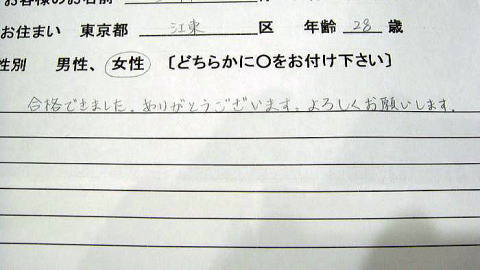 お客様のお名前
お住まい 東京都 江東 区 年齢 28 歳
性別 男性、女性 〔どちらかに〇をお付け下さい〕
合格できました。ありがとうございます。よろしくお願いします。